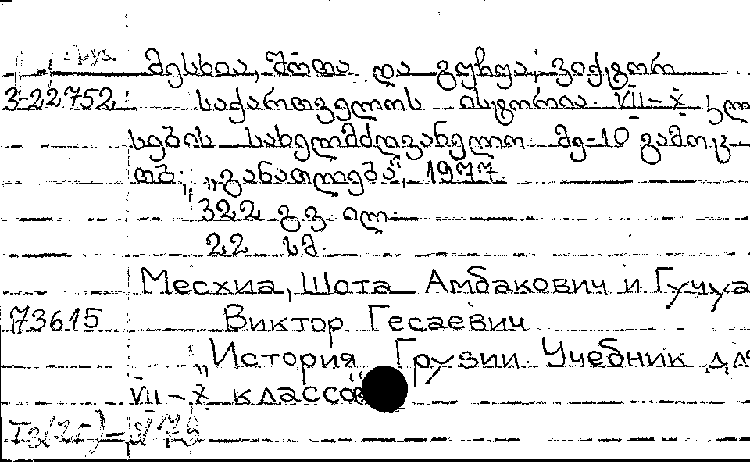 მესხია, შოთა და გუჩუა, ვიქტორ
3-22752 საქართველოს ისტორია VII-X კლა
სების სახელმძღვანელო. მე-10 გამოც.
თბ., „განათლება“, 1977.
322 გვ. ილ.
22 სმ.
Месхиа, Шота Амбакович и Гучуа
73615 Виктор Гесаевич
„История Грузии. Учебник для
VII-X классов“